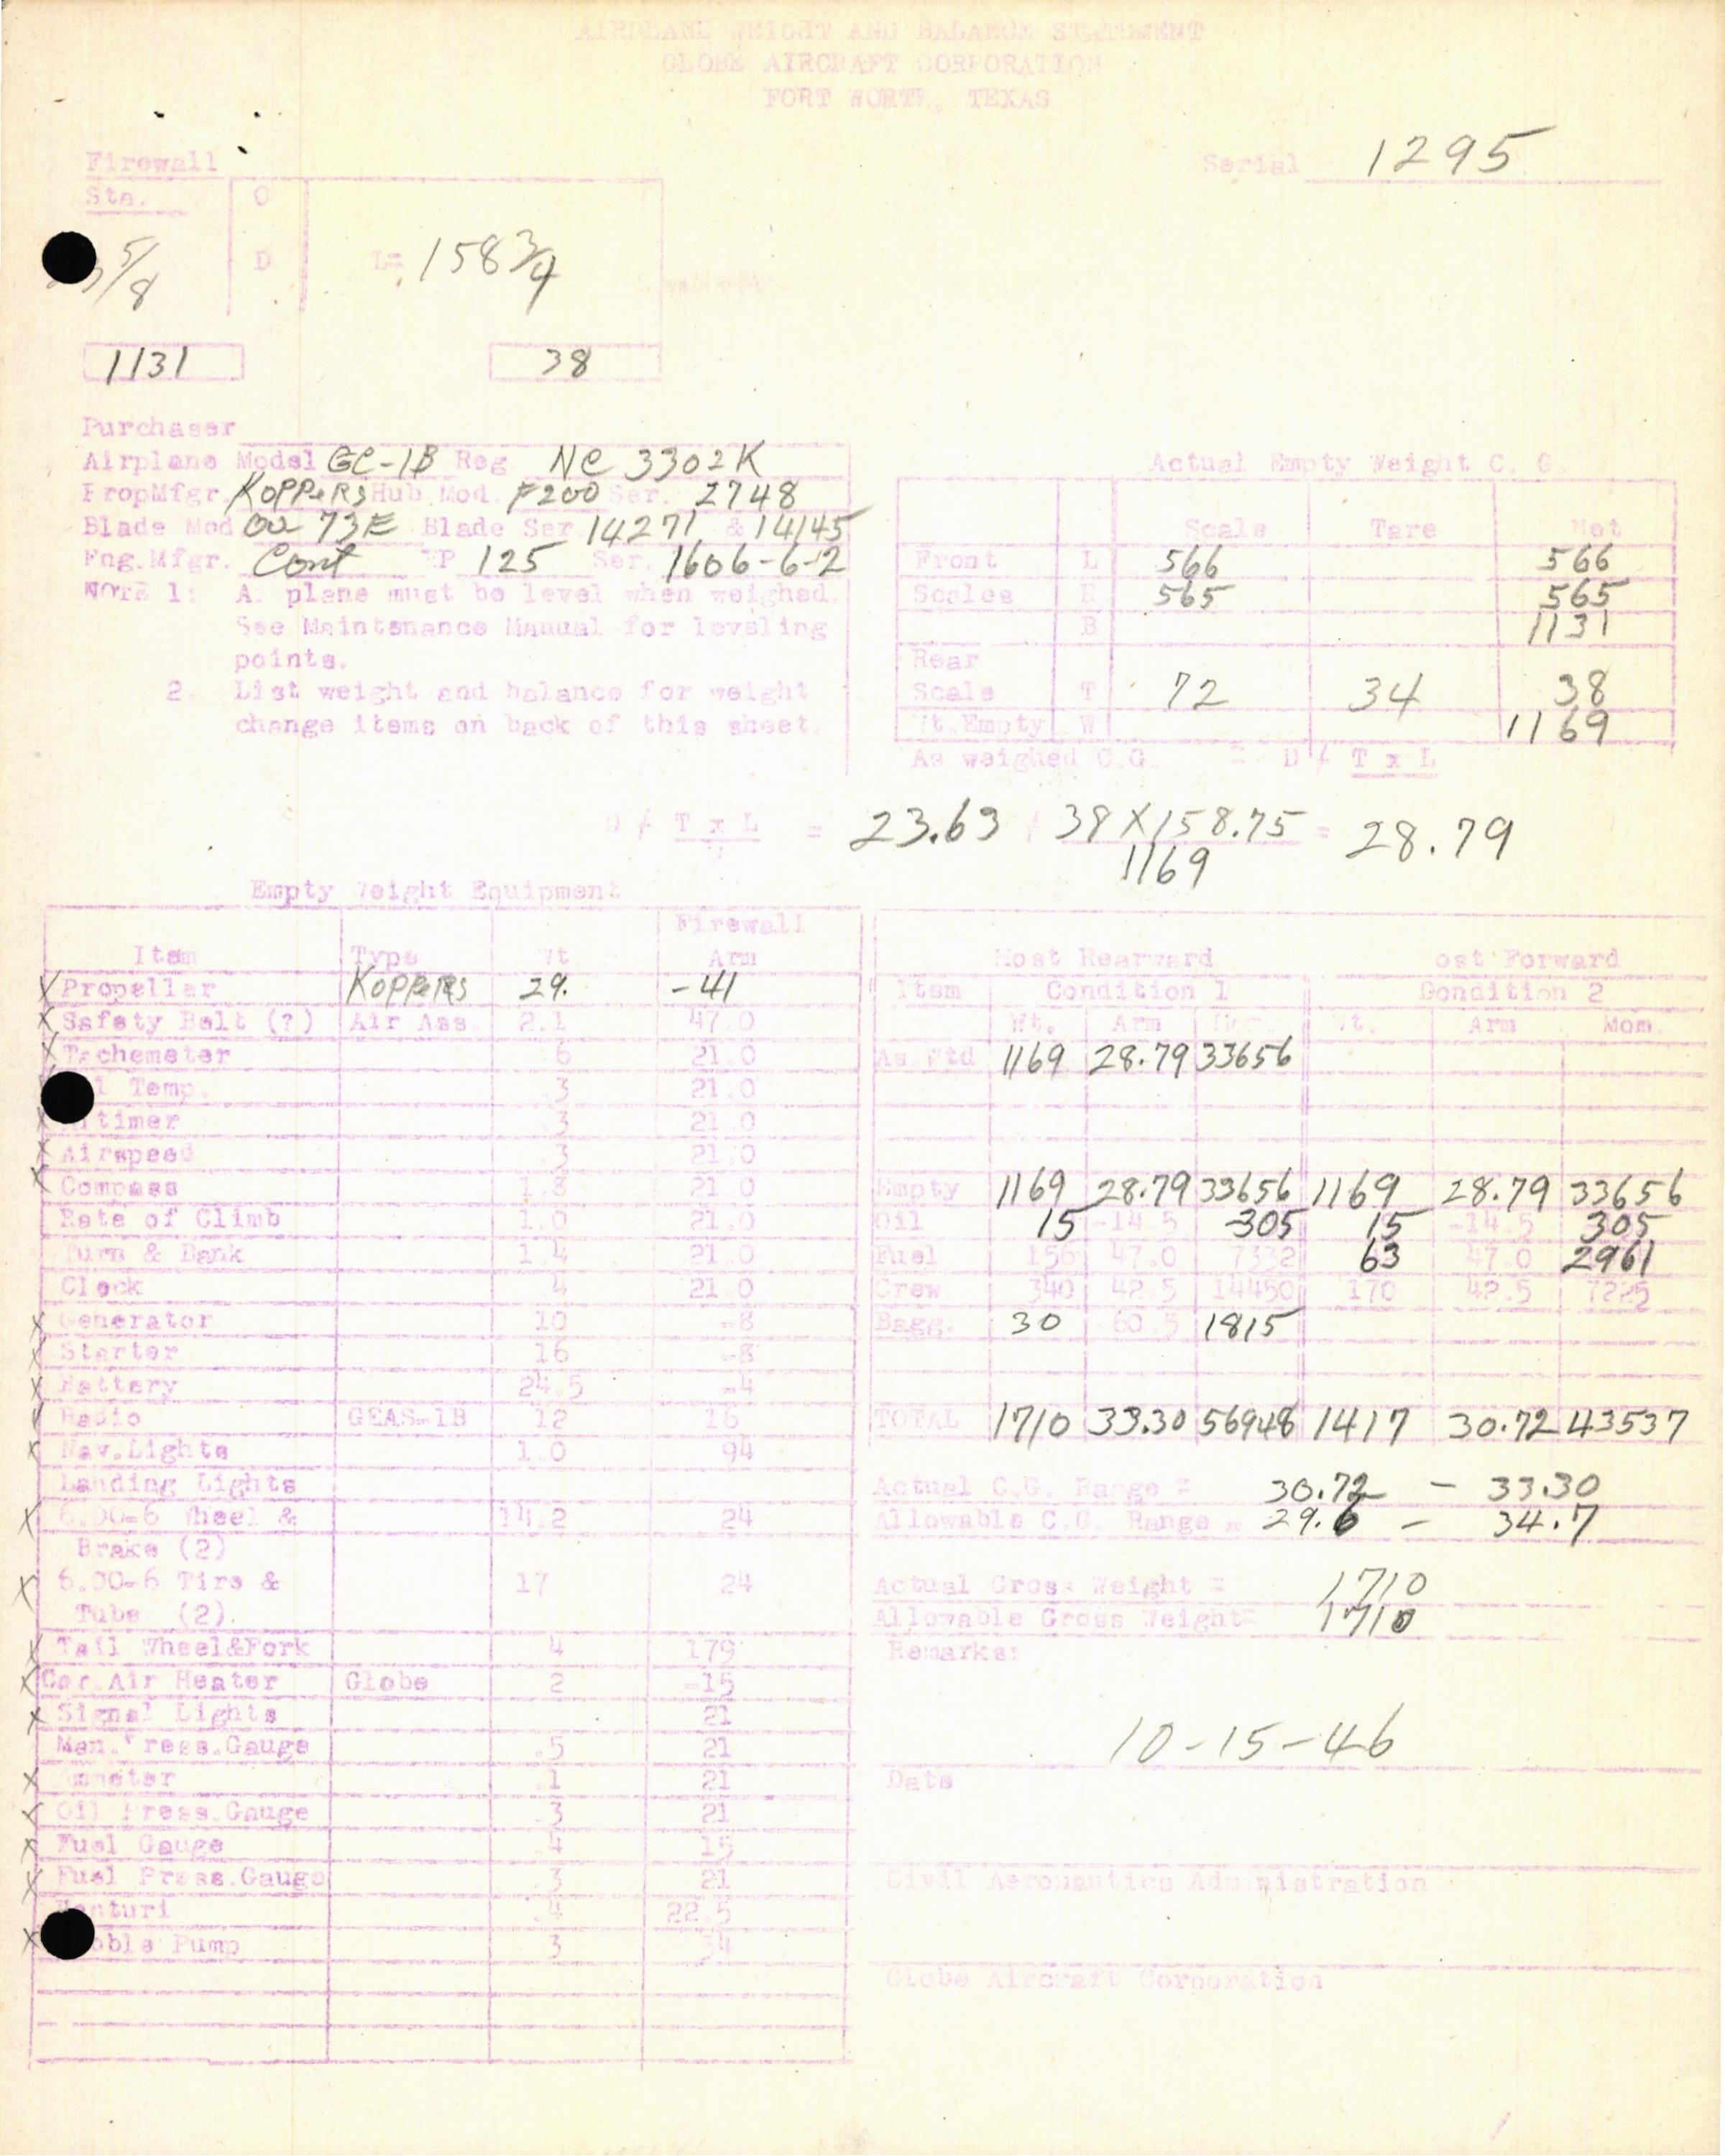 AIRPLANE WEIGHT AND BALANCE STATEMENT
GLOBE AIRCRAFT CORPORATION
FORT WORTH, TEXAS
Firewall
Serial 1295
Sta. O
5/8 D L= 158 3/4
1131 38
Purchaser
Airplane Model GC-1B Reg NC 3302K
PropMfgr. KOPPERS Hub Mod. F200 Ser. 2748
Blade Mod 73E Blade Ser 14271 & 14145
Eng.Mfgr. Cont HP 125 Ser. 1606-6-2
NOTE 1: A plane must be level when weighed.
See Maintenance Manual for leveling
points.
2. List weight and balance for weight
change items on back of this sheet.
Actual Empty Weight C. G.
Scale Tare Net
Front L 566 566
Scales R 565 565
B 1131
Rear
Scale T 72 34 38
Wt.Empty W 1169
As weighed C.G. = D / T x L
D / T x L = 23.63 / 38 X 158.75 = 28.79
W 1169
Empty Weight Equipment
Firewall
Item Type Wt. Arm
X Propeller KOPPERS 29. -41
X Safety Belt (?) Air Ass. 2.1 47.0
X Tachemeter .6 21.0
l Temp. .3 21.0
X timer .3 21.0
X Airspeed .3 21.0
X Compass 1.3 21.0
Rate of Climb 1.0 21.0
Turn & Bank 1.4 21.0
Clock .4 21.0
X Generator 10 -8
X Starter 16 -8
X Battery 24.5 -4
Radio GEAS-1B 12 16
X Nav.Lights 1.0 94
Landing Lights
X 6.00-6 Wheel & 14.2 24
Brake (2)
X 6.00-6 Tire & 17 24
Tube (2).
X Tail Wheel&Fork 4 179
X Car.Air Heater Globe 2 -15
X Signal Lights 21
Man.Press.Gauge .5 21
X mmeter .1 21
X Oil Press.Gauge .3 21
X Fuel Gauge .4 15
X Fuel Press.Gauge .3 21
Venturi .4 22.5
X obble Pump 3 34
Most Rearward ost Forward
Item Condition 1 Condition 2
Wt. Arm Mom. Wt. Arm Mom.
As Wtd 1169 28.79 33656
Empty 1169 28.79 33656 1169 28.79 33656
Oil 15 -14.5 -305 15 -14.5 305
Fuel 156 47.0 7332 63 47.0 2961
Crew 340 42.5 14450 170 42.5 7225
Bagg. 30 60.5 1815
TOTAL 1710 33.30 56948 1417 30.72 43537
Actual C.G. Range = 30.72 - 33.30
Allowable C.G. Range = 29.6 - 34.7
Actual Gross Weight = 1710
Allowable Gross Weight= 1710
Remarks:
10-15-46
Date
Civil Aeronautics Administration
Globe Aircraft Corporation